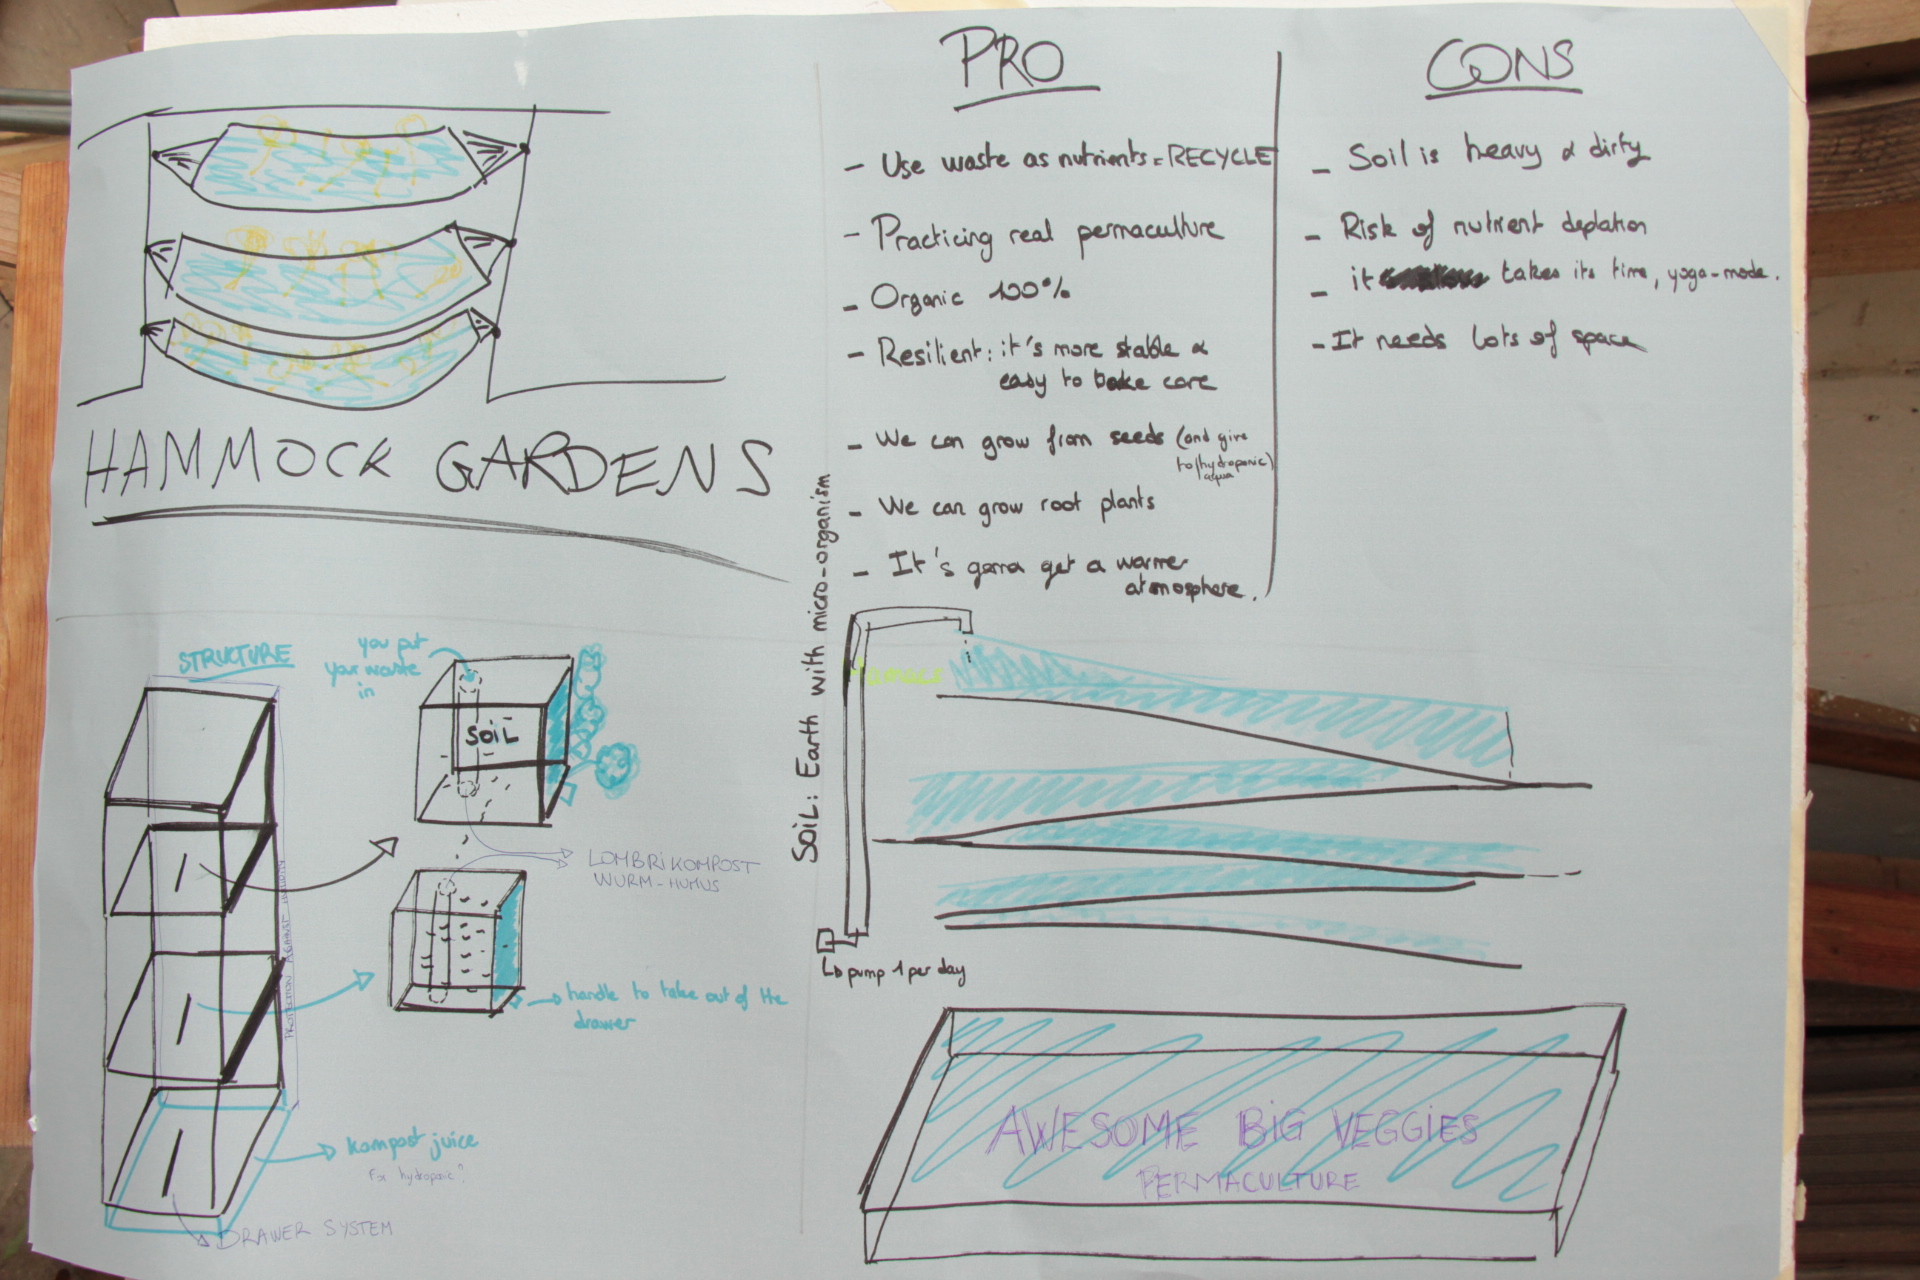 HAMMOCK GARDENS
PRO
- Use waste as nutrients = RECYCLE
- Practicing real permaculture
- Organic 100%
- Resilient: it's more stable &
easy to take care
- We can grow from seeds (and give
to/hydroponic)
aqua
- We can grow root plants
- It's gonna get a warmer
atmosphere.
CONS
- Soil is heavy & dirty
- Risk of nutrient depletion
- it takes its time, yoga-mode.
- It needs lots of space
SOIL: Earth with micro-organism
STRUCTURE
you put
your waste
in
SOIL
LOMBRIKOMPOST
WURM-HUMUS
PROTECTION AGAINST
handle to take out of the
drawer
kompost juice
For hydroponic?
DRAWER SYSTEM
pump 1 per day
AWESOME BIG VEGGIES
PERMACULTURE